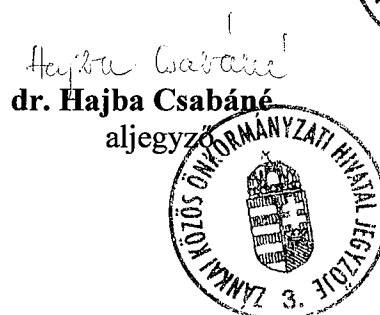 Hajba Csabáné
dr. Hajba Csabáné
aljegyző
ZÁNKAI KÖZÖS ÖNKORMÁNYZATI HIVATAL JEGYZŐJE
3.